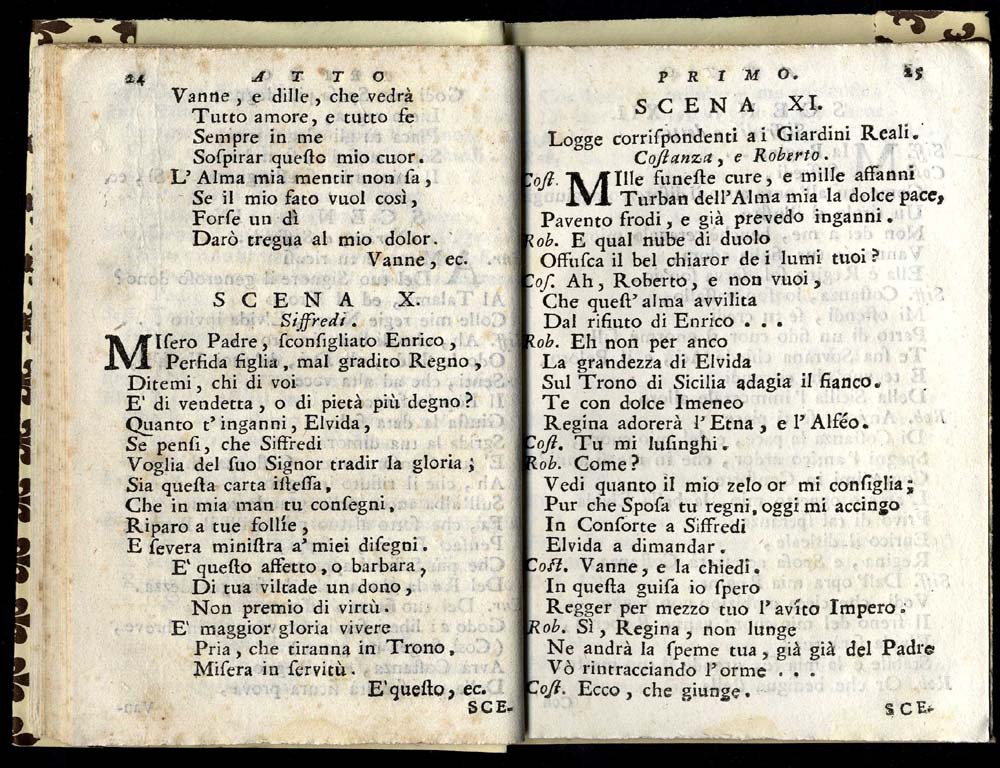 24
A T T O
Vanne, e dille, che vedrà
Tutto amore, e tutto fe
Sempre in me
Soſpirar queſto mio cuor.
L' Alma mia mentir non ſa,
Se il mio fato vuol così,
Forſe un dì
Darò tregua al mio dolor.
Vanne, ec.
S C E N A X.
Siffredi.
MIſero Padre, ſconſigliato Enrico,
Perfida figlia, mal gradito Regno,
Ditemi, chi di voi
E' di vendetta, o di pietà più degno?
Quanto t' inganni, Elvida,
Se penſi, che Siffredi
Voglia del ſuo Signor tradir la gloria;
Sia queſta carta iſteſſa,
Che in mia man tu conſegni,
Riparo a tue follìe,
E ſevera miniſtra a' miei diſegni.
E' queſto affetto, o barbara,
Di tua viltade un dono,
Non premio di virtù.
E' maggior gloria vivere
Pria, che tiranna in Trono,
Miſera in ſervitù.
E' queſto, ec.
SCE-
P R I M O.
25
SCENA XI.
Logge corriſpondenti a i Giardini Reali.
Coſtanza, e Roberto.
Coſt. MIlle funeſte cure, e mille affanni
Turban dell' Alma mia la dolce pace,
Pavento frodi, e già prevedo inganni.
Rob. E qual nube di duolo
Offuſca il bel chiaror de i lumi tuoi?
Coſ. Ah, Roberto, e non vuoi,
Che queſt' alma avvilita
Dal rifiuto di Enrico . . .
Rob. Eh non per anco
La grandezza di Elvida
Sul Trono di Sicilia adagia il fianco.
Te con dolce Imeneo
Regina adorerà l' Etna, e l' Alféo.
Coſt. Tu mi luſinghi.
Rob. Come?
Vedi quanto il mio zelo or mi conſiglia;
Pur che Spoſa tu regni, oggi mi accingo
In Conſorte a Siffredi
Elvida a dimandar.
Coſt. Vanne, e la chiedi.
In queſta guiſa io ſpero
Regger per mezzo tuo l' avìto Impero.
Rob. Sì, Regina, non lunge
Ne andrà la ſpeme tua, già già del Padre
Vò rintracciando l' orme . . .
Coſt. Ecco, che giunge.
SCE-